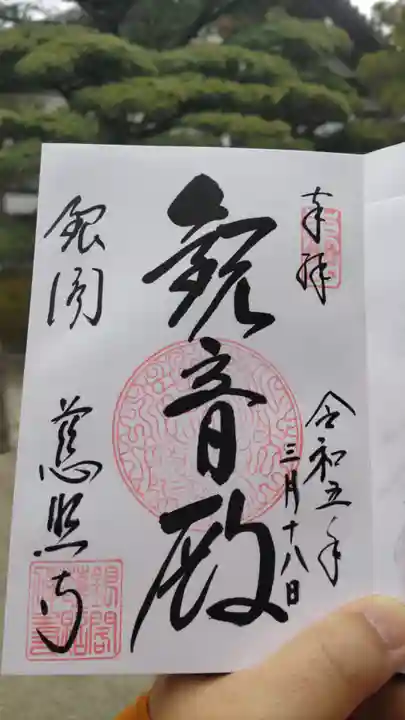 奉拝
令和五年
三月十八日
観音殿
銀閣
慈照寺